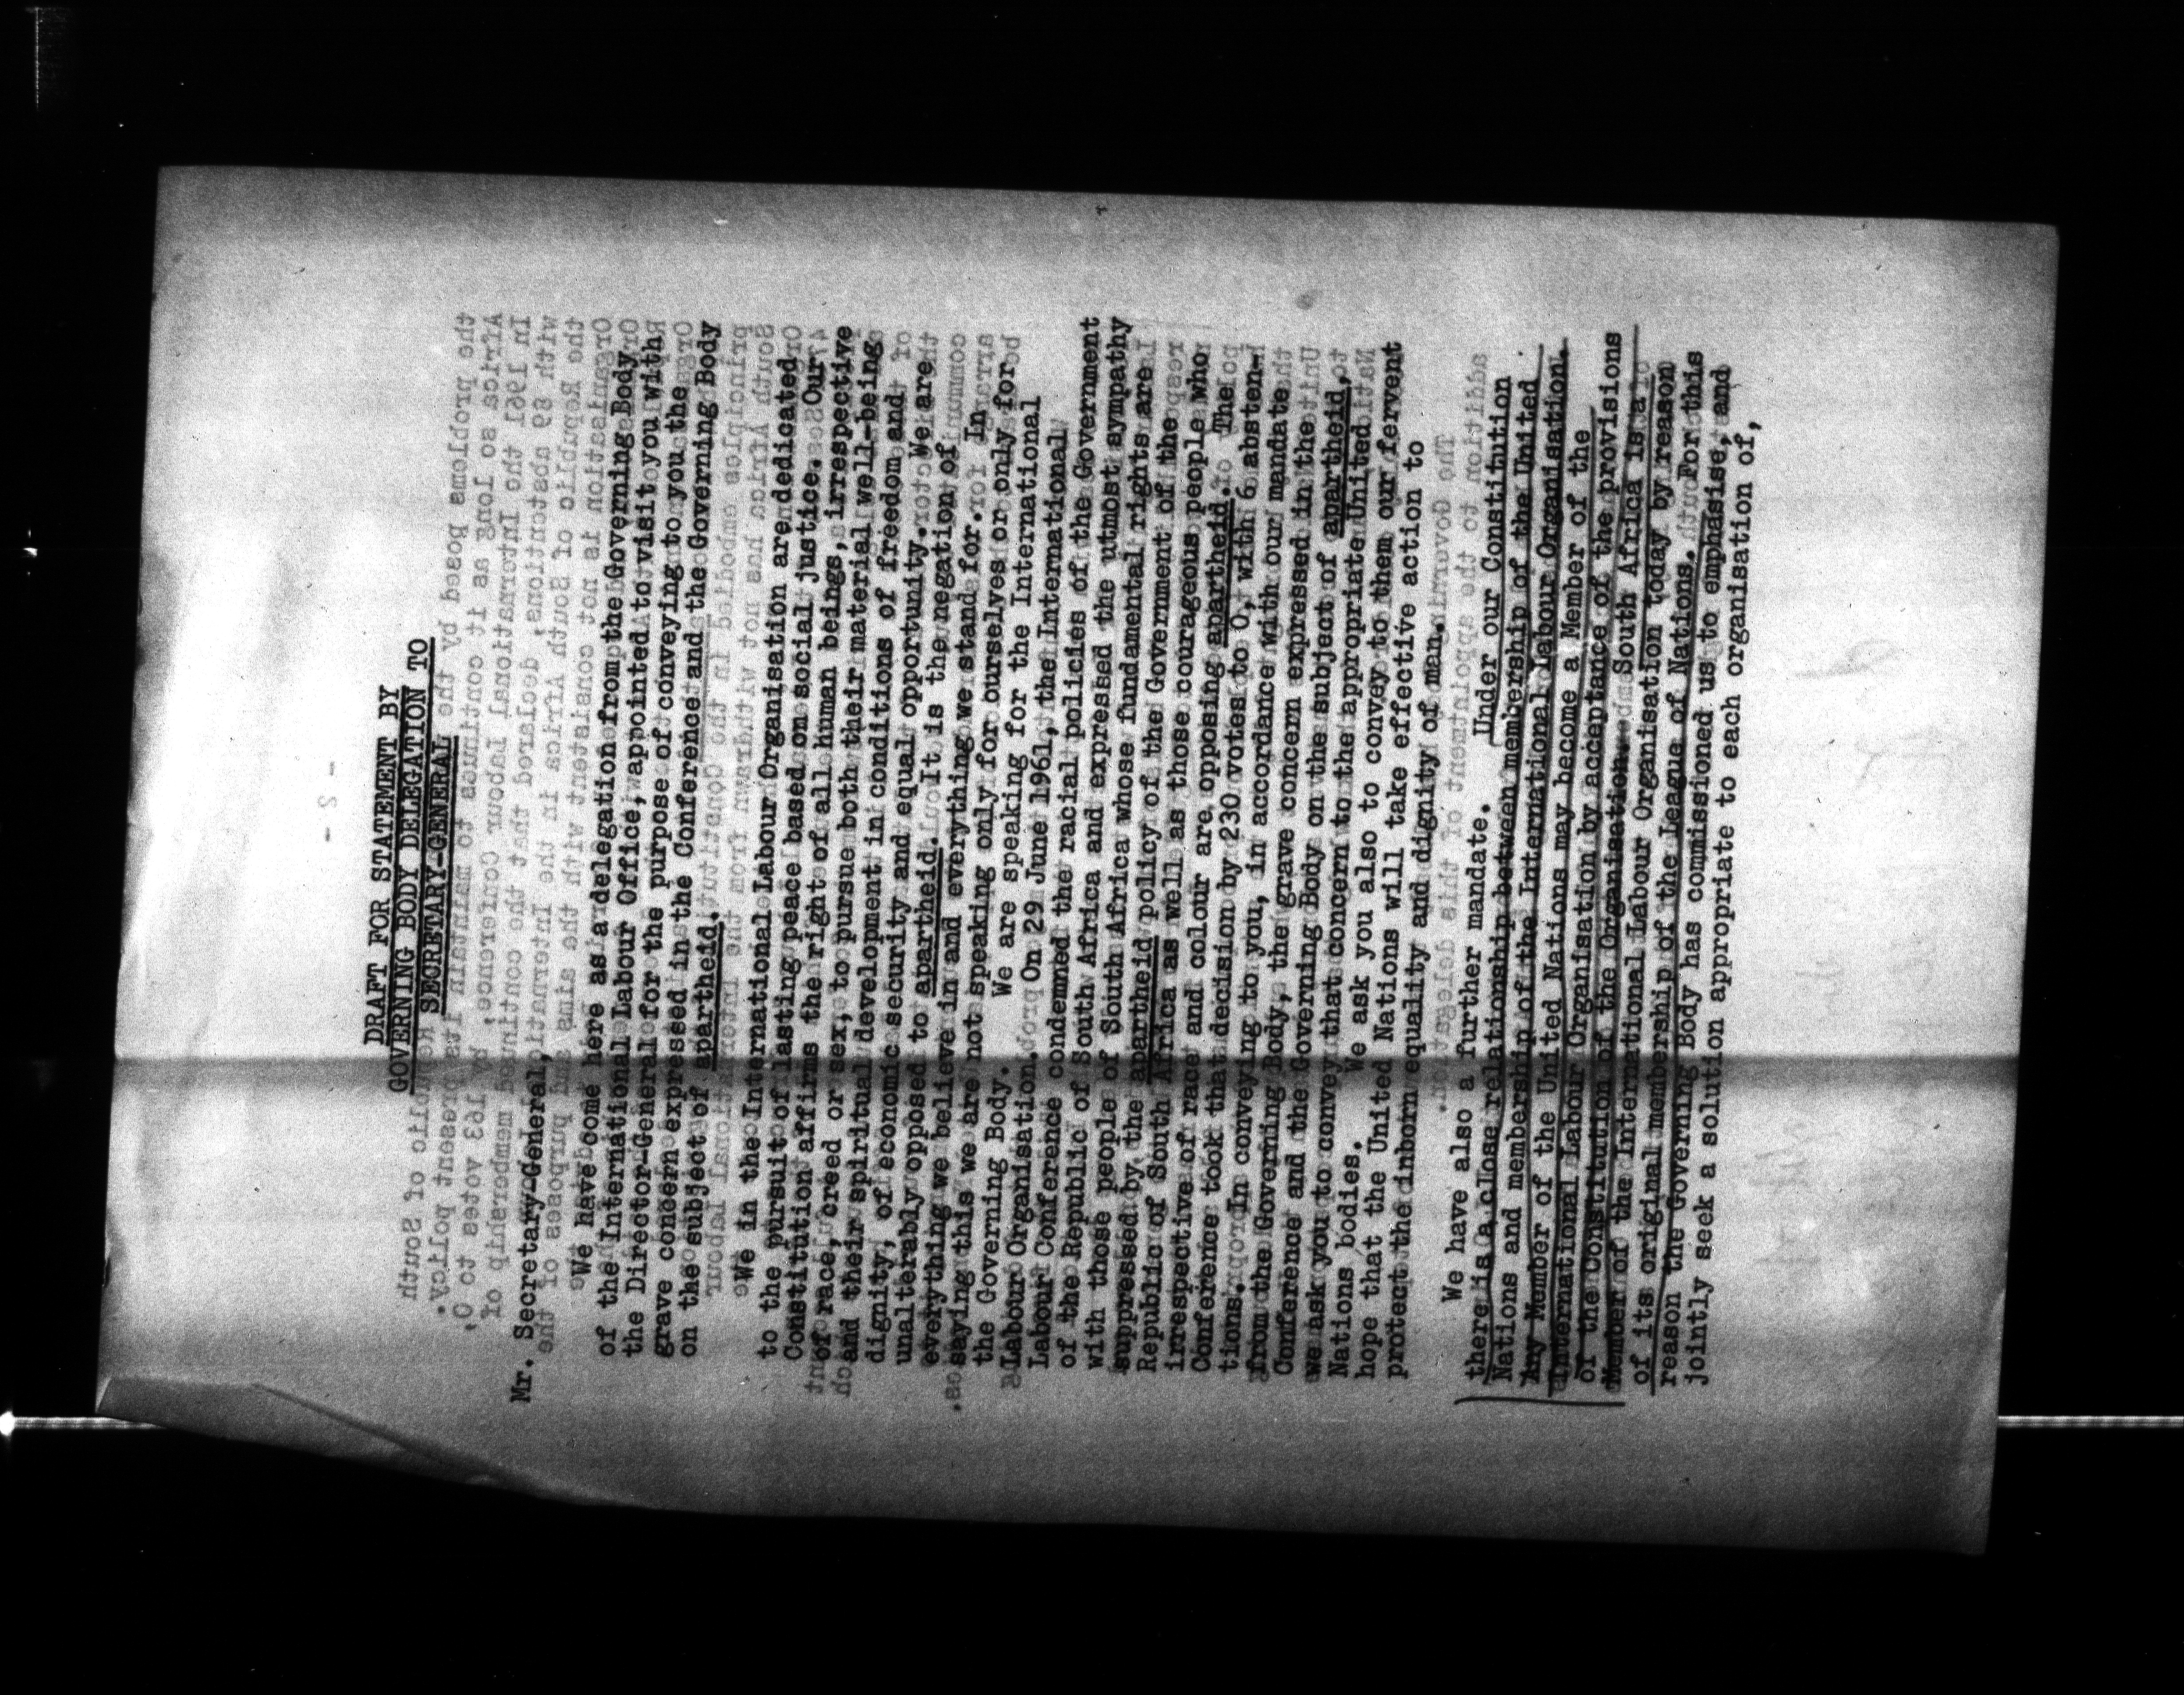 DRAFT FOR STATEMENT BY
GOVERNING BODY DELEGATION TO
SECRETARY-GENERAL
Mr. Secretary-General,
We have come here as a delegation from the Governing Body
of the International Labour Office, appointed to visit you with
the Director-General for the purpose of conveying to you the
grave concern expressed in the Conference and the Governing Body
on the subject of apartheid.
We in the International Labour Organisation are dedicated
to the pursuit of lasting peace based on social justice. Our
Constitution affirms the right of all human beings, irrespective
of race, creed or sex, to pursue both their material well-being
and their spiritual development in conditions of freedom and
dignity, of economic security and equal opportunity. We are
unalterably opposed to apartheid. It is the negation of
everything we believe in and everything we stand for. In
saying this we are not speaking only for ourselves or only for
the Governing Body. We are speaking for the International
Labour Organisation. On 29 June 1961, the International
Labour Conference condemned the racial policies of the Government
of the Republic of South Africa and expressed the utmost sympathy
with those people of South Africa whose fundamental rights are
suppressed by the apartheid policy of the Government of the
Republic of South Africa as well as those courageous people who
irrespective of race and colour are opposing apartheid. The
Conference took that decision by 230 votes to 0, with 6 absten-
tions. In conveying to you, in accordance with our mandate
from the Governing Body, the grave concern expressed in the
Conference and the Governing Body on the subject of apartheid,
we ask you to convey that concern to the appropriate United
Nations bodies. We ask you also to convey to them our fervent
hope that the United Nations will take effective action to
protect the inborn equality and dignity of man.
We have also a further mandate. Under our Constitution
there is a close relationship between membership of the United
Nations and membership of the International Labour Organisation.
Any Member of the United Nations may become a Member of the
International Labour Organisation by acceptance of the provisions
of the Constitution of the Organisation. South Africa is a
Member of the International Labour Organisation today by reason
of its original membership of the League of Nations. For this
reason the Governing Body has commissioned us to emphasise, and
jointly seek a solution appropriate to each organisation of,